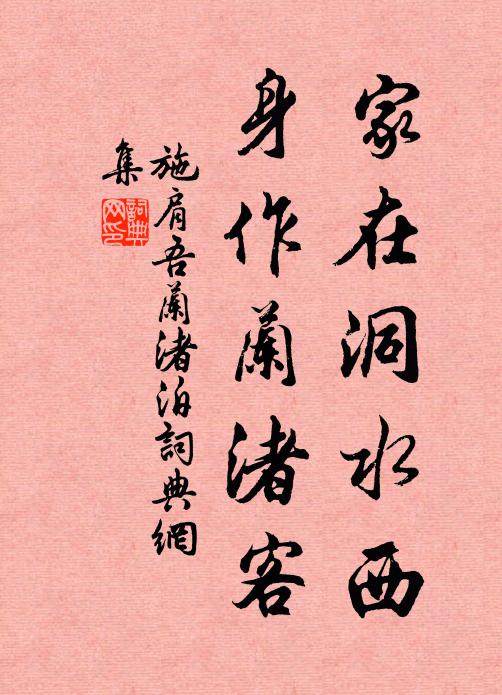 家在洞水西
身作蘭渚客
施肩吾蘭渚泊詞典網
集
詞典网印